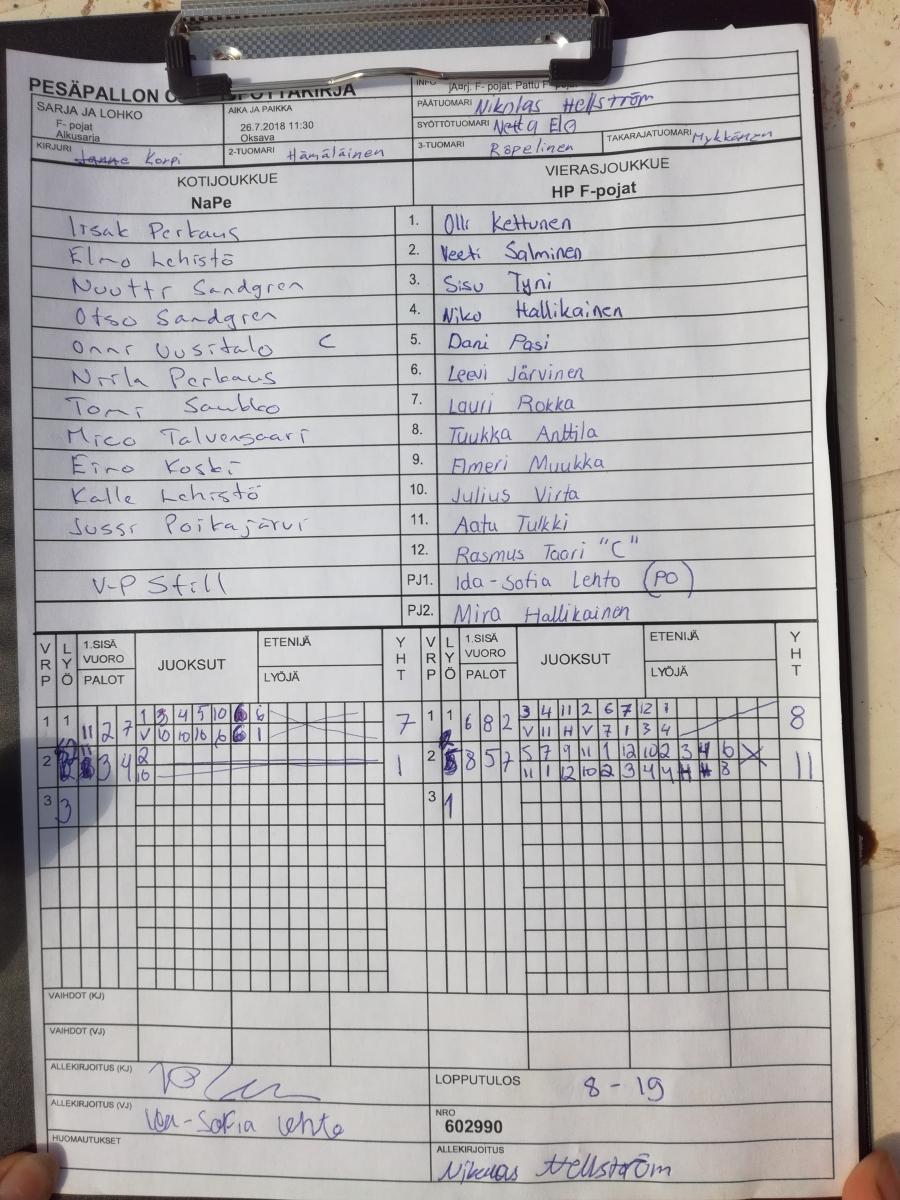 PESÄPALLON OTTAKIRJA
INFO
jAarj. F- pojat: Pattu F-pojat
SARJA JA LOHKO
F- pojat
Alkusarja
AIKA JA PAIKKA
26.7.2018 11:30
Oksava
PÄÄTUOMARI Nikolas Hellström
SYÖTTÖTUOMARI Netta Elo
KIRJURI Janne Korpi
2-TUOMARI Hämäläinen
3-TUOMARI Röpelinen
TAKARAJATUOMARI Mykkänen
KOTIJOUKKUE
NaPe
VIERASJOUKKUE
HP F-pojat
Iisak Perkaus 1. Olli Kettunen
Elmo Lehistö 2. Veeti Salminen
Nuutti Sandgren 3. Sisu Tyni
Otso Sandgren 4. Niko Hallikainen
Onni Uusitalo C 5. Dani Pasi
Niila Perkaus 6. Leevi Järvinen
Tomi Saukko 7. Lauri Rokka
Mico Talvensaari 8. Tuukka Anttila
Eino Koski 9. Elmeri Muukka
Kalle Lehistö 10. Julius Virta
Jussi Poikajärvi 11. Aatu Tulkki
12. Rasmus Taari "C"
V-P Still PJ1. Ida-Sofia Lehto (PO)
PJ2. Mira Hallikainen
VRP LYÖ 1.SISÄ VUORO PALOT JUOKSUT ETENIJÄ LYÖJÄ YHT VRP LYÖ 1.SISÄ VUORO PALOT JUOKSUT ETENIJÄ LYÖJÄ YHT
1 1 11 2 7 1 3 4 5 10 6 7 1 1 6 8 2 3 4 11 2 6 7 12 1 8
V 10 10 10 6 6 1 V 11 H V 7 1 3 4
2 3 4 2 1 2 2 8 5 7 5 7 9 11 1 12 10 2 3 4 6 11
10 11 1 12 10 2 3 4 4 8
3 3 3 1
VAIHDOT (KJ)
VAIHDOT (VJ)
ALLEKIRJOITUS (KJ)
LOPPUTULOS 8 - 19
ALLEKIRJOITUS (VJ) Ida-Sofia Lehto
NRO
602990
HUOMAUTUKSET
ALLEKIRJOITUS
Nikolas Hellström